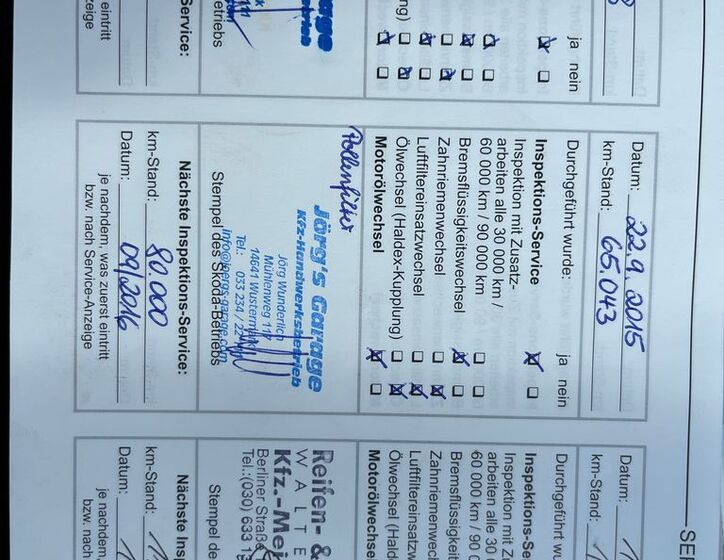 Service:
eintritt
nzeige
etriebs
rage
ja nein
Datum: 22.9.2015
km-Stand: 65.043
Durchgeführt wurde: ja nein
Inspektions-Service
Inspektion mit Zusatz-
arbeiten alle 30 000 km /
60 000 km / 90 000 km
Bremsflüssigkeitswechsel
Zahnriemenwechsel
Luftfiltereinsatzwechsel
Ölwechsel (Haldex-Kupplung)
Motorölwechsel
Pollenfilter
Jörg's Garage
Kfz-Handwerksbetrieb
Jörg Wunderlich
Mühlenweg 11
14641 Wustermark
Tel.: 033 234 / 22
info@joergs-garage.com
Stempel des Škoda-Betriebs
Nächste Inspektions-Service:
km-Stand: 80.000
Datum: 09/2016
je nachdem, was zuerst eintritt
bzw. nach Service-Anzeige
SER
Datum:
km-Stand:
Durchgeführt wu
Inspektions-Se
Inspektion mit
arbeiten alle 30
60 000 km / 90 0
Bremsflüssigke
Zahnriemenwe
Luftfiltereinsatz
Ölwechsel (Hald
Motorölwechse
Reifen- &
WALTE
Kfz.-Mei
Berliner Straße
Tel.:(030) 633 1
Stempel de
Nächste Ins
km-Stand:
Datum:
je nachdem,
bzw. nach